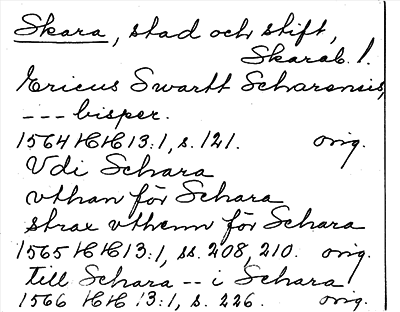 Skara, stad och stift,
Skarab. l.
Ericus Swartt Scharensis,
--- bisper.
1564 HH 13:1, s. 121. orig.
Vdi Schara
vthan för Schara
strax vthenn för Schara
1565 HH 13:1, ss. 208, 210. orig.
till Schara -- i Schara
1566 HH 13:1, s. 226. orig.